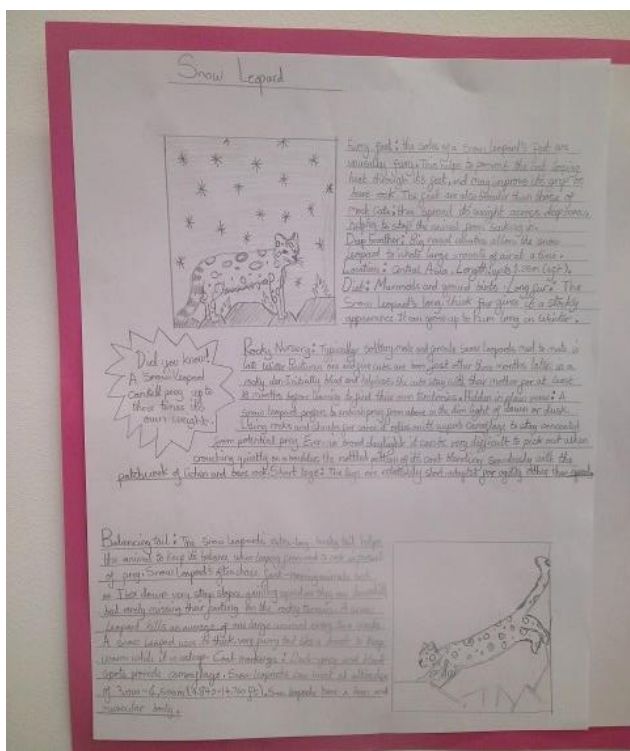 Snow Leopard
Furry feet: the soles of a Snow Leopard's feet are
unusually furry. This helps to prevent the cat losing
heat through its feet, and may improve its grip on
bare rock. The feet are also broader than those of
most cats; they spread its weight across deep snow,
helping to stop the animal from sinking in.
Deep breather: Big nasal cavities allow the snow
leopard to inhale large amounts of air at a time.
Location: Central Asia. Length: up to
Diet: Mammals and ground birds. Long fur: The
Snow Leopard's long, thick fur gives it a stocky
appearance. It can grow up to long in winter.
Did you know!
A Snow leopard
can kill prey up to
three times its
own weight.
Rocky Nursery: Typically solitary, male and female snow leopards meet to mate in
late winter. Between one and five cubs are born just other three months later in a
rocky den. Initially blind and helpless the cubs stay with their mother for at least
18 months before leaving to find their own territories. Hidden in plain sight: A
Snow leopard prefers to ambush prey from above in the dim light of dawn or dusk.
Using rocks and shrubs for cover, it relies on its expert camouflage to stay concealed
from potential prey. Even in broad daylight it can be very difficult to pick out when
crouching quietly on a boulder, the mottled pattern of its coat blending seamlessly with the
patchwork of lichen and bare rock. Short legs: The legs are relatively short, adapted for agility rather than speed.
Balancing tail: The Snow Leopard's extra-long, bushy tail helps
the animal to keep its balance when leaping from rock to rock in pursuit
of prey. Snow Leopard's often chase fast-running animals such
as Ibex down very steep slopes, gaining speed as they are downhill
but rarely missing their footing on the rocky terrain. A snow
leopard kills an average of one large animal every two weeks.
A snow leopard uses its thick, very furry tail like a to keep
warm while it is asleep. Coat markings: Dark-grey and black
spots provide camouflage. Snow leopards can live at altitudes
of Snow leopards have a long and
muscular body.